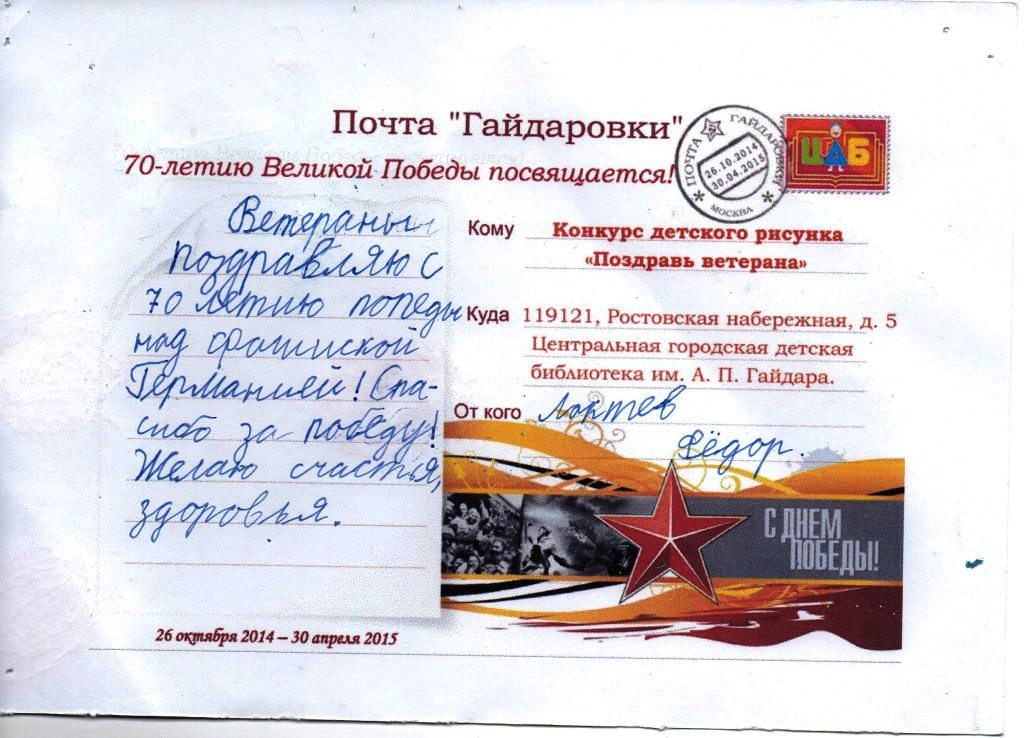 Почта "Гайдаровки"
70-летию Великой Победы посвящается!
ПОЧТА ГАЙДАРОВКИ
26.10.2014
30.04.2015
МОСКВА
ЦГДБ
Ветераны
поздравляю с
70 летию победы
над фашиской
Германией! Спа-
сибо за победу!
Желаю счастья,
здоровья.
26 октября 2014 – 30 апреля 2015
Кому Конкурс детского рисунка
«Поздравь ветерана»
Куда 119121, Ростовская набережная, д. 5
Центральная городская детская
библиотека им. А. П. Гайдара.
От кого Локтев
Фёдор.
С ДНЕМ
ПОБЕДЫ!